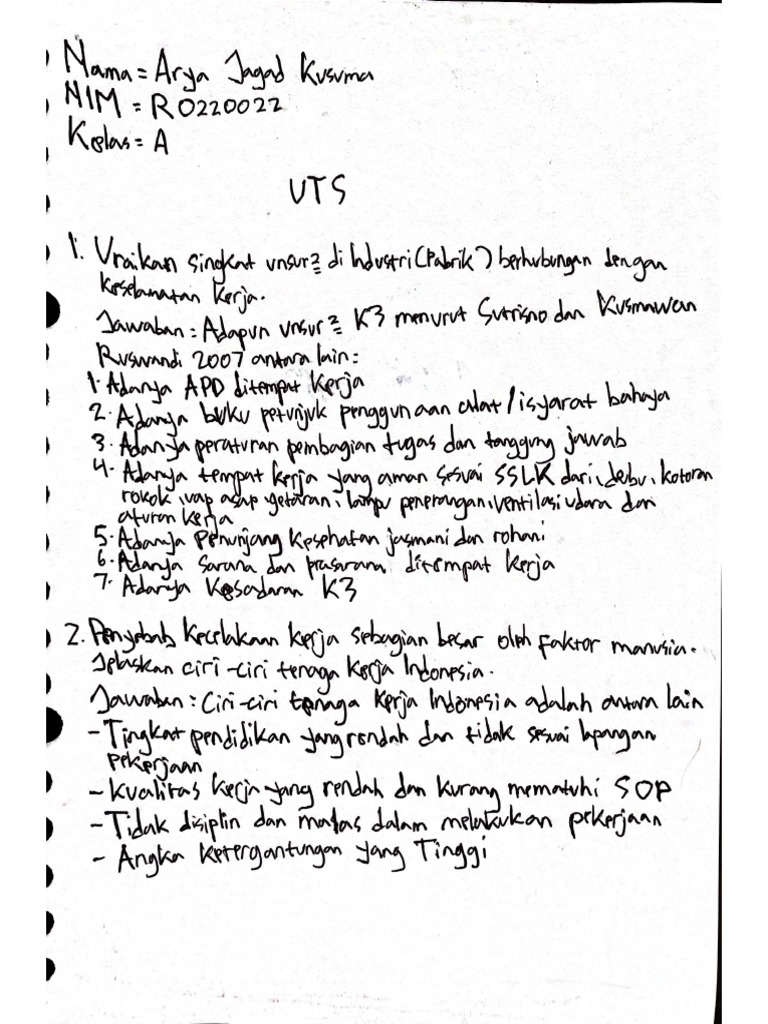 Nama = Arya Jagad Kusuma
NIM = R0220022
Kelas = A
UTS
1. Uraikan singkat unsur2 di Industri (Pabrik) berhubungan dengan
keselamatan kerja.
Jawaban : Adapun unsur2 K3 menurut Sutrisno dan Kusmawan
Ruswandi 2007 antara lain :
1. Adanya APD ditempat kerja
2. Adanya buku petunjuk penggunaan alat / isyarat bahaya
3. Adanya peraturan pembagian tugas dan tanggung jawab
4. Adanya tempat kerja yang aman sesuai SSLK dari, debu, kotoran
rokok, uap asap, getaran, lampu penerangan, ventilasi udara dan
aturan kerja
5. Adanya Penunjang kesehatan jasmani dan rohani
6. Adanya sarana dan prasarana ditempat kerja
7. Adanya kesadaran K3
2. Penyebab kecelakaan kerja sebagian besar oleh faktor manusia.
Jelaskan ciri-ciri tenaga kerja Indonesia.
Jawaban : Ciri-ciri tenaga kerja Indonesia adalah antara lain
- Tingkat pendidikan yang rendah dan tidak sesuai lapangan
pekerjaan
- Kualitas kerja yang rendah dan kurang mematuhi SOP
- Tidak disiplin dan malas dalam melakukan pekerjaan
- Angka ketergantungan yang Tinggi